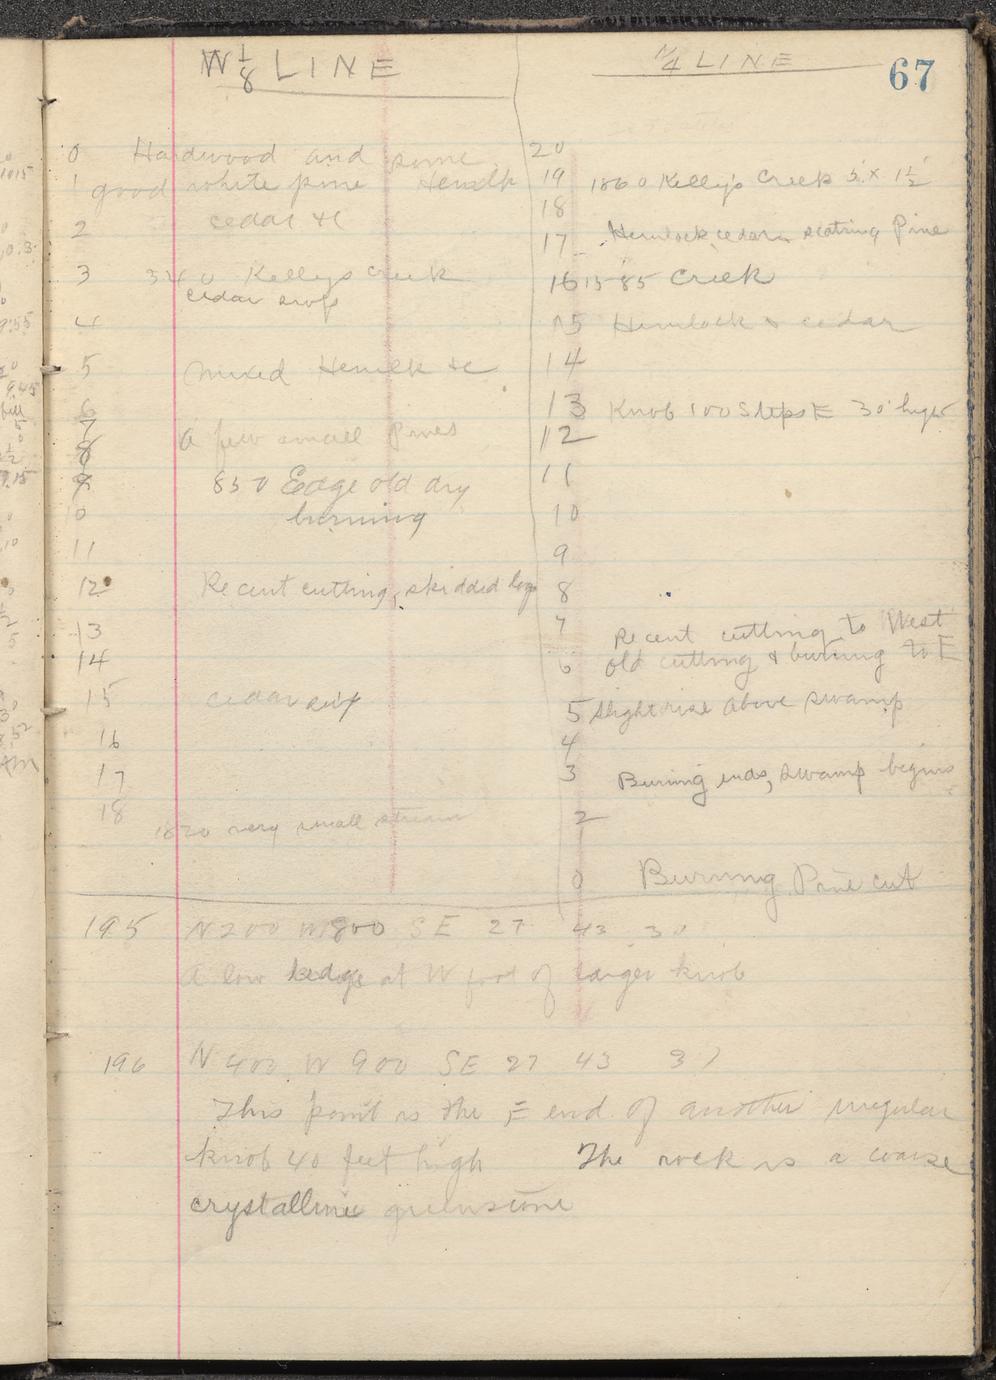 67
W 1/8 LINE
0 Hardwood and some
1 good white pine Hemlk
2 cedar &c
3 Kellys Creek
cedar
4
5 mixed Hemlk &c
6
7 a few small Pines
8
9 850 Edge old dry
10 burning
11
12 Recent cutting, skidded logs
13
14
15 cedar
16
17
18
1820 very small stream
1/4 LINE
20
19 1860 Kellys Creek 5' x 1 1/2'
18
17 Hemlock, cedar, Pine
16 1585 Creek
15 Hemlock & cedar
14
13 Knob 100 Steps E 30' high
12
11
10
9
8
7 Recent cutting to West
6 old cutting & burning to E
5 Slight rise above swamp
4
3 Burning ends, swamp begins
2
0 Burning Pine cut
195 N 200 W 800 SE 27 43
A low ledge at W foot of larger knob
196 N 400 W 900 SE 27 43 31
This point is the E end of another irregular
knob 40 feet high The rock is a coarse
crystalline greenstone